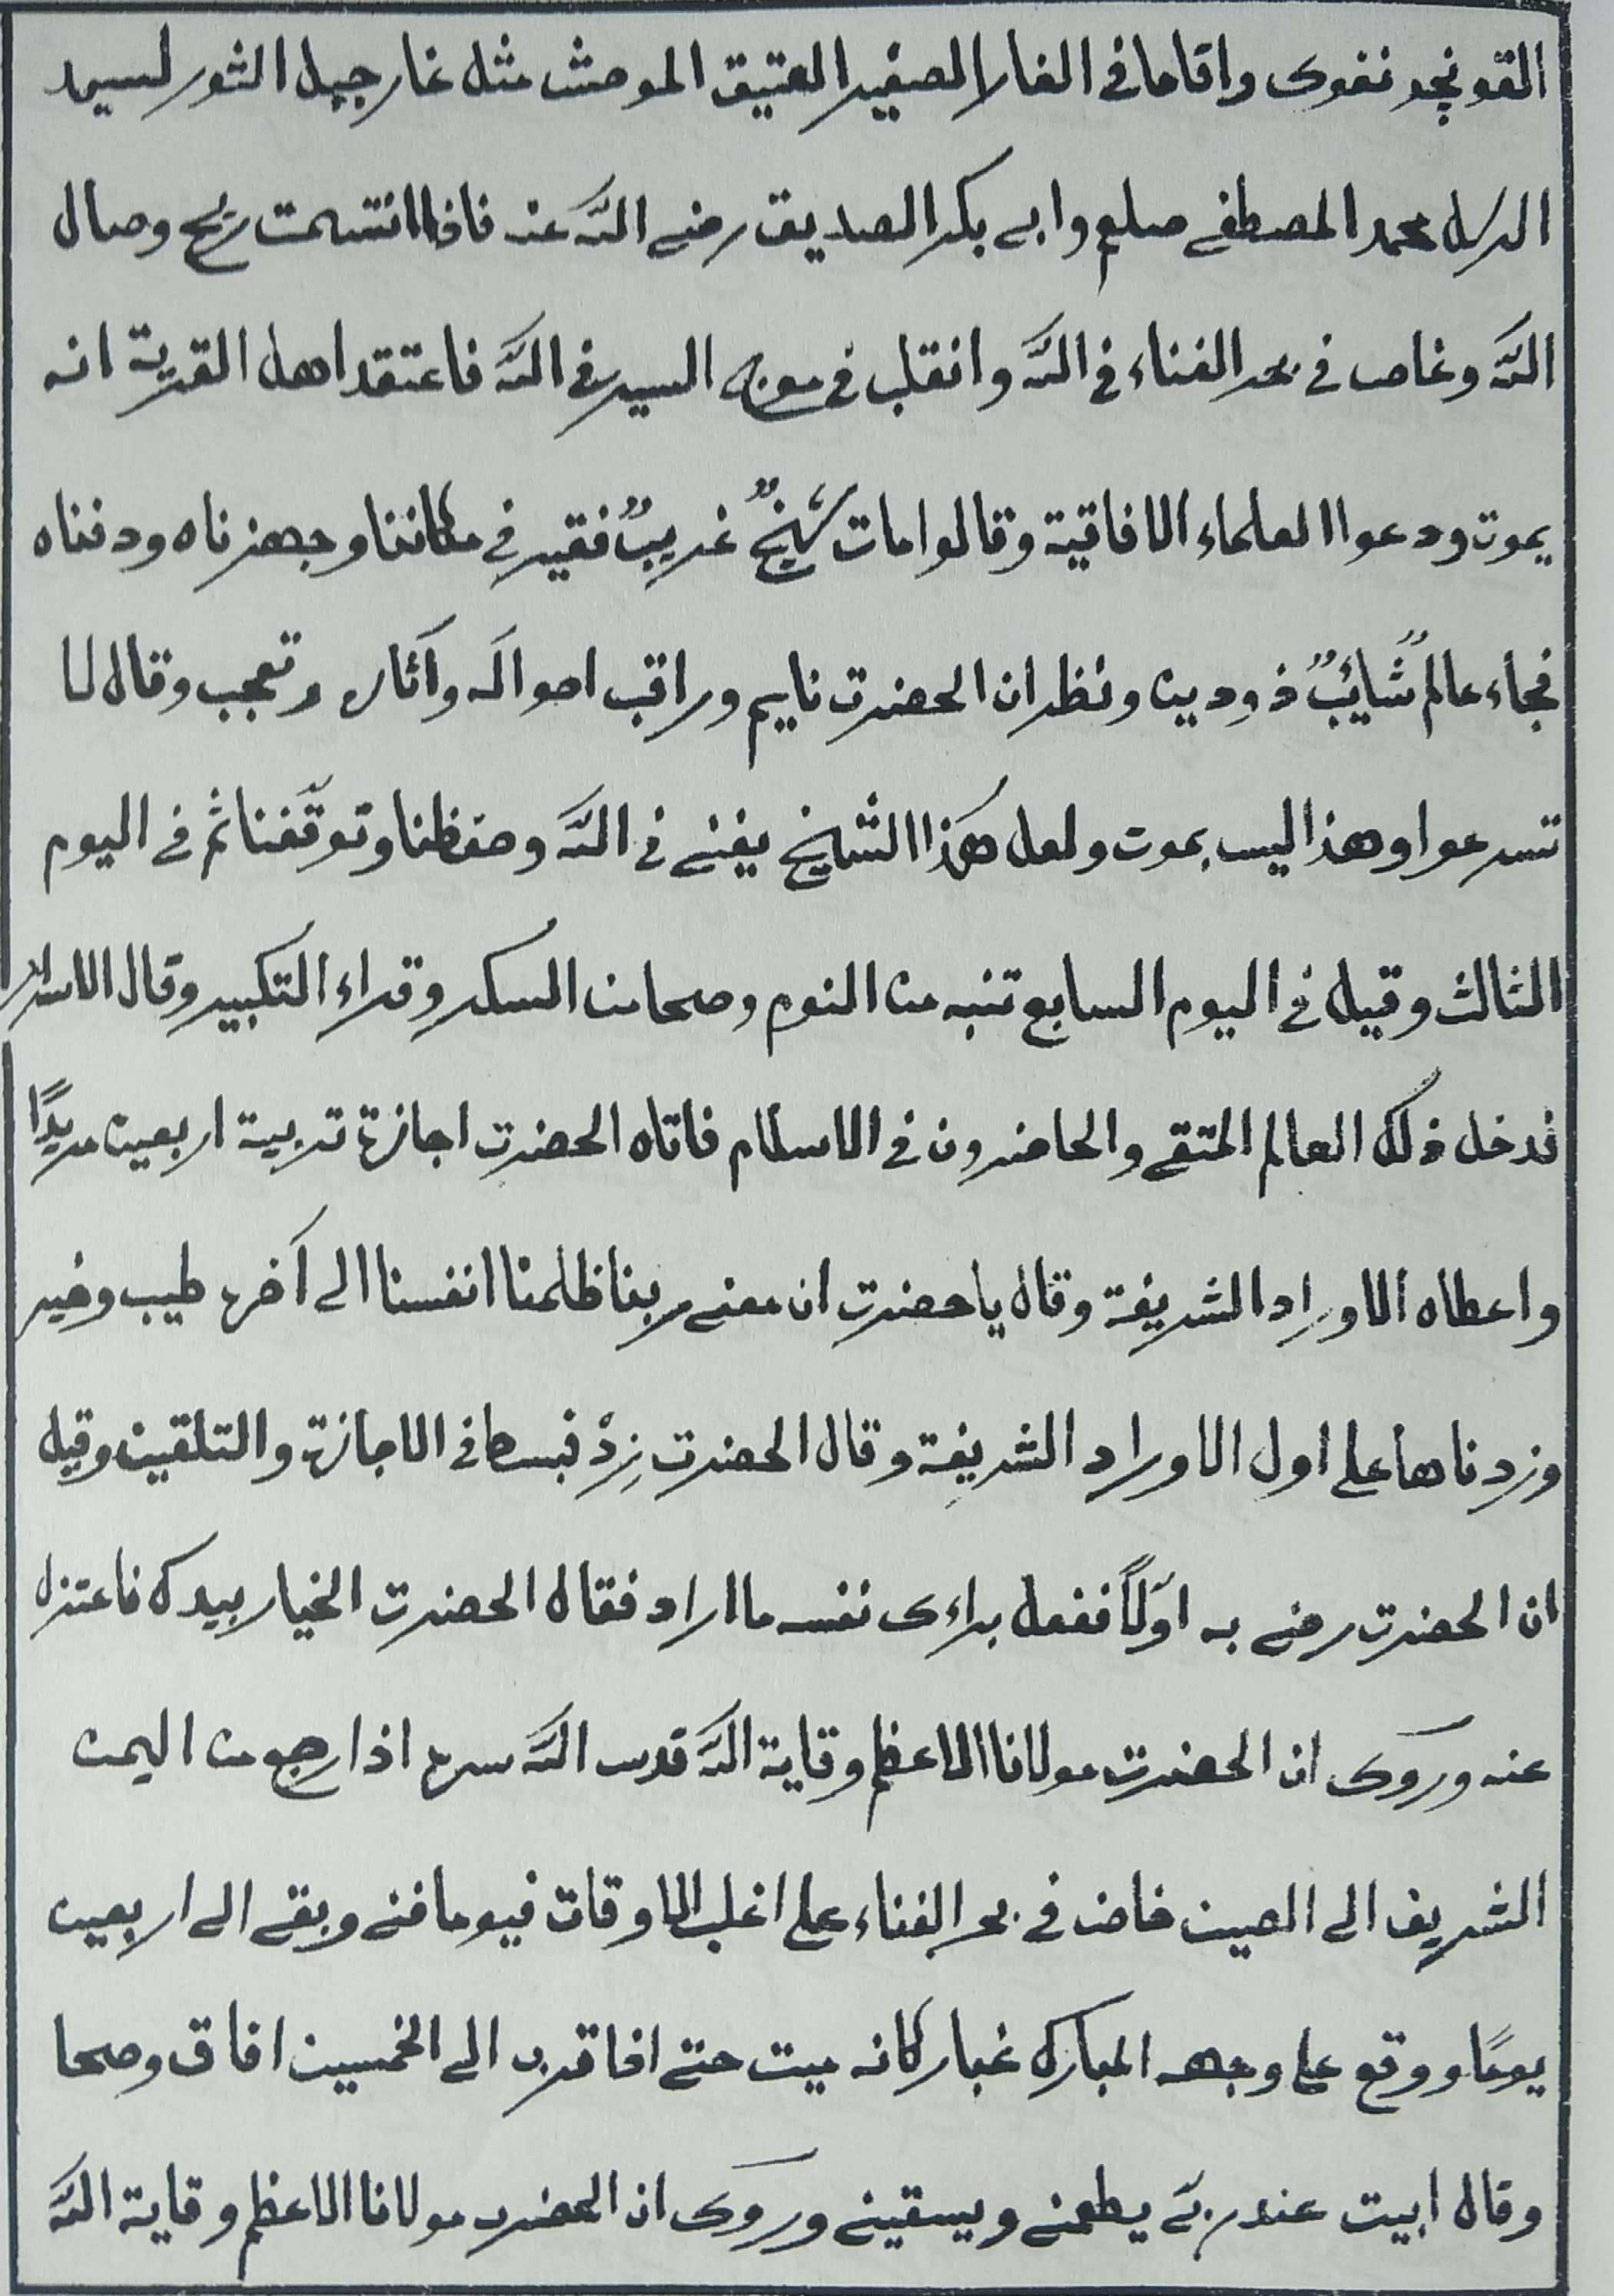 القونجو نغوى واقاما فى الغار الصغير العتيق الموحش مثل غار جبل الثور لسيد
الرسل محمد المصطفى صلعم وابى بكر الصديق رضى اللّه عنه فاذا انتسمت ريح وصال
اللّه وغاص فى بحر الفناء فى اللّه وانقلب فى موجه السير فى اللّه فاعتقد اهل القرية انه
يموت ودعوا العلماء الافاقية وقالوا مات شيخٌ غريبٌ فقير فى مكاننا وجهزناه ودفناه
فجاء عالمٌ شائبٌ ذو دين ونظر ان الحضرت نايم وراقب احواله وآثاره وتعجب وقال لا
تسرعوا وهذا ليس بموت ولعل هكذا الشيخ يفنى فى اللّه وحفظنا وتوقّفنا ثم فى اليوم
الثالث وقيل فى اليوم السابع تنبه من النوم وصحا من السكر وقراء التكبير وقال الاسرار
فدخل ذلك العالم المتقى والحاضرون فى الاسلام فاتاه الحضرت اجازة تربية اربعين مريدًا
واعطاه الاوراد الشريفة وقال يا حضرت ان معنى ربنا ظلمنا انفسنا الى آخره طيب وخير
وزدناها على اول الاوراد الشريفة وقال الحضرت زِدْ فبسط فى الاجازة والتلقين وقيل
ان الحضرت رضى به اوّلاً ففعل براءى نفسه ما اراد فقال الحضرت الخيار بيدك فاعتزل
عنه وروى ان الحضرت مولانا الاعظم وقاية اللّه قدس اللّه سره اذا رجع من اليمن
الشريف الى الصين خاض فى بحر الفناء على اغلب الاوقات فيوما فنى وبقى الى اربعين
يومًا ووقع على وجهه المبارك غبار كانه ميت حتى اذا قرب الى الخمسين افاق وصحا
وقال ابيت عند ربّى يطعمنى ويسقينى وروى ان الحضرت مولانا الاعظم وقاية اللّه